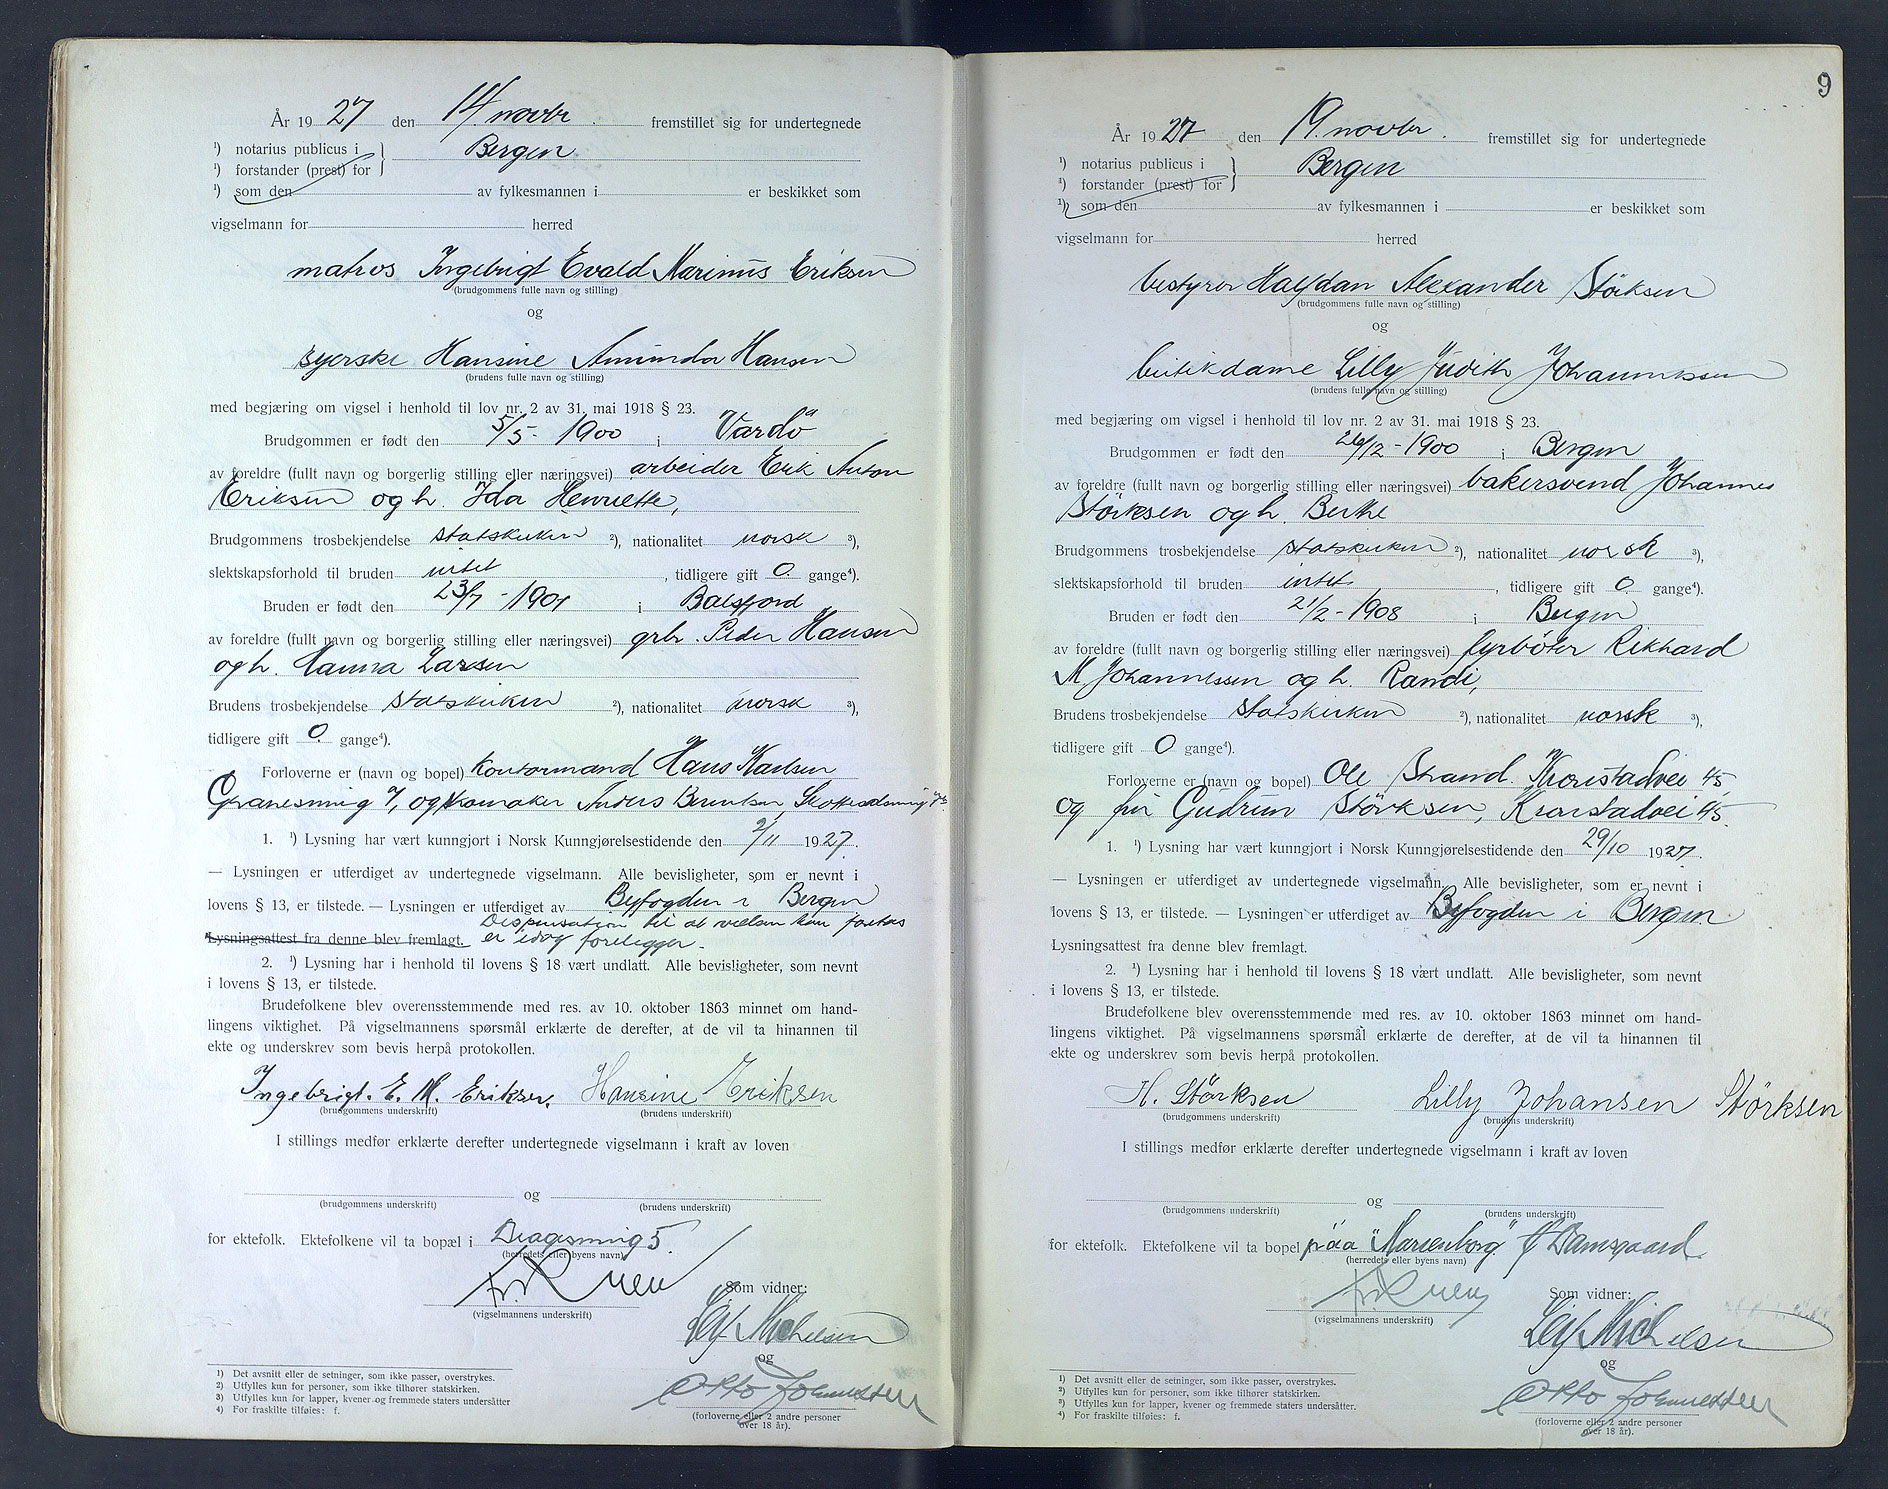 År 1927 den 14. novbr. fremstillet sig for undertegnede
¹) notarius publicus i } Bergen
¹) forstander (prest) for
¹) som den av fylkesmannen i er beskikket som
vigselmann for herred
matros Ingebrigt Evald Marinus Eriksen
(brudgommens fulle navn og stilling)
og
syerske Hansine Aminda Hansen
(brudens fulle navn og stilling)
med begjæring om vigsel i henhold til lov nr. 2 av 31. mai 1918 § 23.
Brudgommen er født den 5/5 - 1900 i Vardö
av foreldre (fullt navn og borgerlig stilling eller næringsvei) arbeider Erik Anton
Eriksen og h. Ida Henriette,
Brudgommens trosbekjendelse statskirken ²), nationalitet norsk ³),
slektskapsforhold til bruden intet, tidligere gift 0 gange⁴).
Bruden er født den 23/7 - 1901 i Balsfjord
av foreldre (fullt navn og borgerlig stilling eller næringsvei) grbr. Peder Hansen
og h. Hanna Larsen
Brudens trosbekjendelse statskirken ²), nationalitet norsk ³),
tidligere gift 0 gange⁴).
Forloverne er (navn og bopel) Kontormand Hans Karlsen
7, og Anders Berntsen
1. ¹) Lysning har vært kunngjort i Norsk Kunngjørelsestidende den 2/11 1927.
— Lysningen er utferdiget av undertegnede vigselmann. Alle bevisligheter, som er nevnt i
lovens § 13, er tilstede. — Lysningen er utferdiget av Byfogden i Bergen
Dispensation til at vielsen kan foretas
Lysningsattest fra denne blev fremlagt. er idag foreligger.
2. ¹) Lysning har i henhold til lovens § 18 vært undlatt. Alle bevisligheter, som nevnt
i lovens § 13, er tilstede.
Brudefolkene blev overensstemmende med res. av 10. oktober 1863 minnet om hand-
lingens viktighet. På vigselmannens spørsmål erklærte de derefter, at de vil ta hinannen til
ekte og underskrev som bevis herpå protokollen.
Ingebrigt. E. M. Eriksen. Hansine Eriksen
(brudgommens underskrift) (brudens underskrift)
I stillings medfør erklærte derefter undertegnede vigselmann i kraft av loven
og
(brudgommens underskrift) (brudens underskrift)
for ektefolk. Ektefolkene vil ta bopæl i 5.
(herredets eller byens navn)
(vigselmannens underskrift)
Som vidner:
Leif Michelsen
og
Otto Johannessen
(forloverne eller 2 andre personer
over 18 år).
¹) Det avsnitt eller de setninger, som ikke passer, overstrykes.
²) Utfylles kun for personer, som ikke tilhører statskirken.
³) Utfylles kun for lapper, kvener og fremmede staters undersåtter
⁴) For fraskilte tilføies: f.
9
År 1927 den 19. novbr. fremstillet sig for undertegnede
¹) notarius publicus i } Bergen
¹) forstander (prest) for
¹) som den av fylkesmannen i er beskikket som
vigselmann for herred
bestyrer Halfdan Alexander Störksen
(brudgommens fulle navn og stilling)
og
butikdame Lilly Judith Johannessen
(brudens fulle navn og stilling)
med begjæring om vigsel i henhold til lov nr. 2 av 31. mai 1918 § 23.
Brudgommen er født den 26/12 - 1900 i Bergen
av foreldre (fullt navn og borgerlig stilling eller næringsvei) bakersvend Johannes
Störksen og h. Berthe
Brudgommens trosbekjendelse statskirken ²), nationalitet norsk ³),
slektskapsforhold til bruden intet, tidligere gift 0 gange⁴).
Bruden er født den 21/2 - 1908 i Bergen
av foreldre (fullt navn og borgerlig stilling eller næringsvei) fyrböter Rikhard
M. Johannessen og h. Randi,
Brudens trosbekjendelse statskirken ²), nationalitet norsk ³),
tidligere gift 0 gange⁴).
Forloverne er (navn og bopel) Ole Strand. Kronstadvei 45,
og fru Gudrun Störksen, Kronstadvei 45.
1. ¹) Lysning har vært kunngjort i Norsk Kunngjørelsestidende den 29/10 1927.
— Lysningen er utferdiget av undertegnede vigselmann. Alle bevisligheter, som er nevnt i
lovens § 13, er tilstede. — Lysningen er utferdiget av Byfogden i Bergen.
Lysningsattest fra denne blev fremlagt.
2. ¹) Lysning har i henhold til lovens § 18 vært undlatt. Alle bevisligheter, som nevnt
i lovens § 13, er tilstede.
Brudefolkene blev overensstemmende med res. av 10. oktober 1863 minnet om hand-
lingens viktighet. På vigselmannens spørsmål erklærte de derefter, at de vil ta hinannen til
ekte og underskrev som bevis herpå protokollen.
H. Störksen Lilly Johansen Störksen
(brudgommens underskrift) (brudens underskrift)
I stillings medfør erklærte derefter undertegnede vigselmann i kraft av loven
og
(brudgommens underskrift) (brudens underskrift)
for ektefolk. Ektefolkene vil ta bopel paa "Marienborg" Damsgaard.
(herredets eller byens navn)
(vigselmannens underskrift)
Som vidner:
Leif Michelsen
og
Otto Johannessen
(forloverne eller 2 andre personer
over 18 år).
¹) Det avsnitt eller de setninger, som ikke passer, overstrykes.
²) Utfylles kun for personer, som ikke tilhører statskirken.
³) Utfylles kun for lapper, kvener og fremmede staters undersåtter.
⁴) For fraskilte tilføies: f.